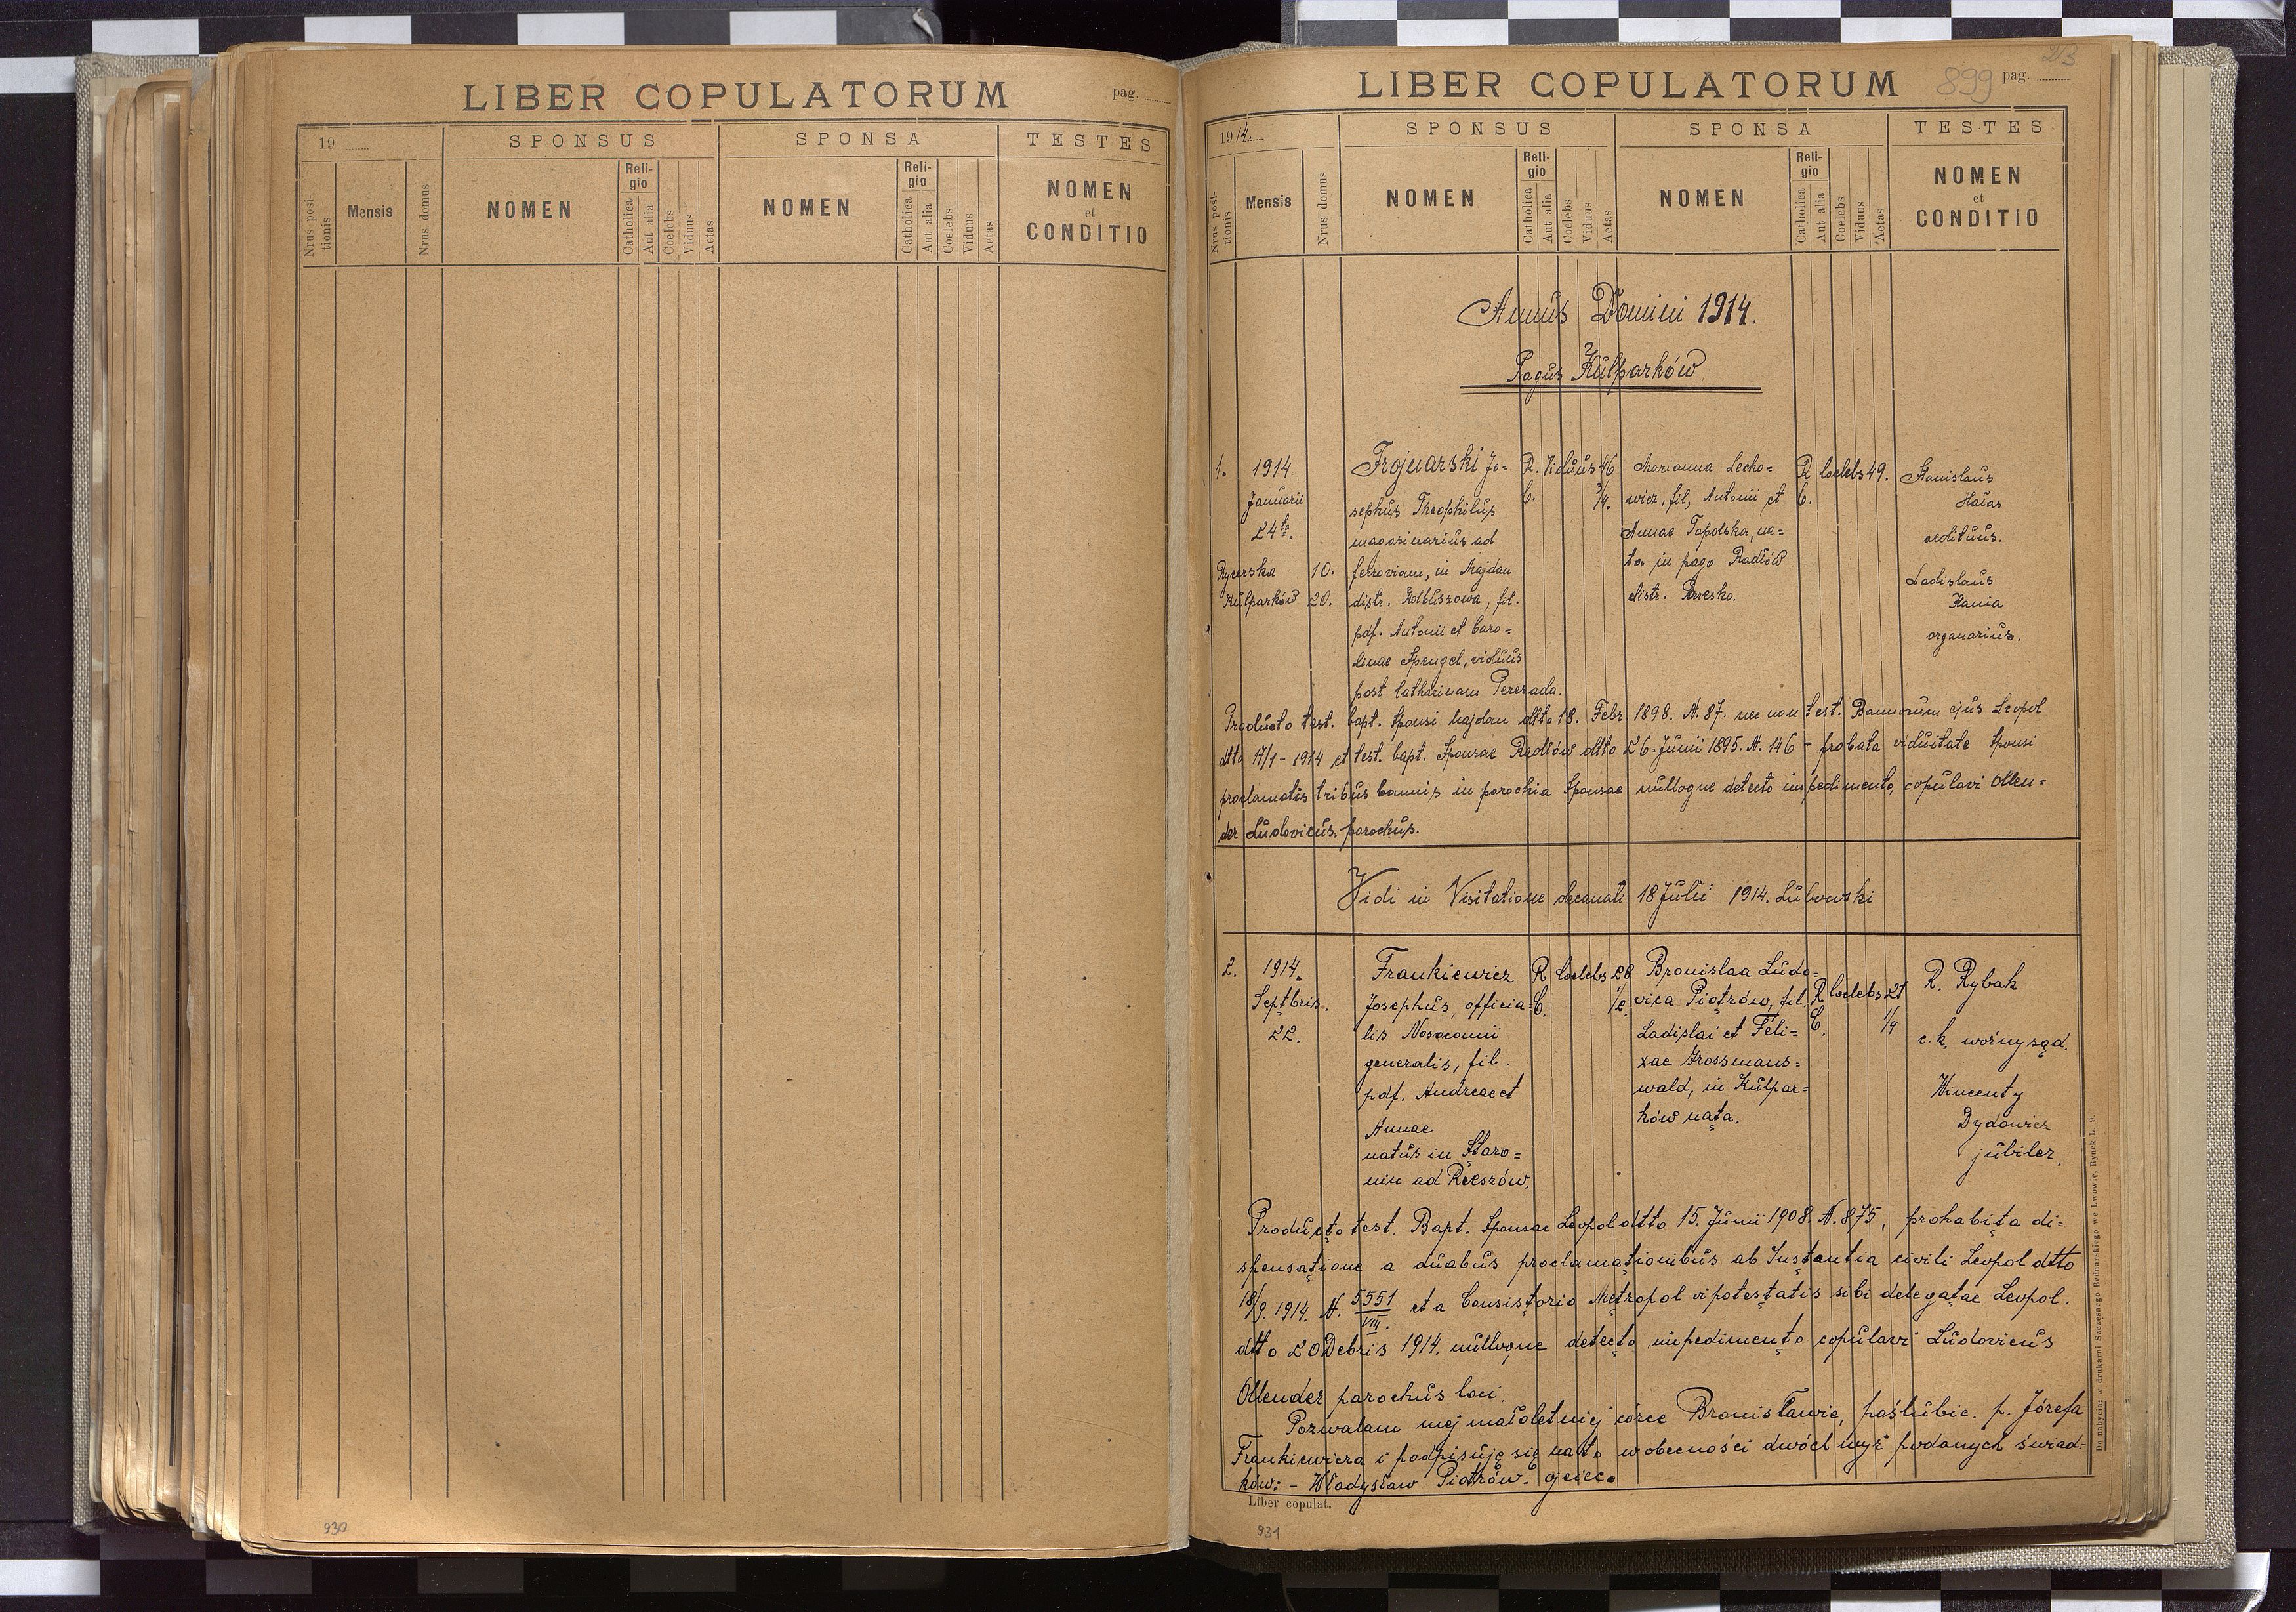 LIBER COPULATORUM
pag.
19
SPONSUS
SPONSA
TESTES
Nrus positionis
Mensis
Nrus domus
NOMEN
Religio
Catholica
Aut alia
Coelebs
Viduus
Aetas
NOMEN
Religio
Catholica
Aut alia
Coelebs
Viduus
Aetas
NOMEN
et
CONDITIO
930
LIBER COPULATORUM
899 pag.
213
1914.
SPONSUS
SPONSA
TESTES
Nrus positionis
Mensis
Nrus domus
NOMEN
Religio
Catholica
Aut alia
Coelebs
Viduus
Aetas
NOMEN
Religio
Catholica
Aut alia
Coelebs
Viduus
Aetas
NOMEN
et
CONDITIO
Annus Domini 1914.
Pagus Kulparków
1.
1914
Januarii
24ta.
Rycerska 10.
Kulparków 20.
Trojnarski Jo=
sephus Theophilus
magasinarius ad
ferroviam, in Majdan
distr. Kolbuszowa, fil.
pdf. Antonii et Caro=
linae Spengel, viduus
post Catharinam
R.
C.
Viduus
46
3/4.
Marianna Lecho=
wicz, fil, Antonii et
Annae Topolska, na=
ta in pago Radłów
distr. Brzesko.
R
C.
Coelebs
49.
Stanislaus
Hałas
aedituus.
Ladislaus
Kania
organarius.
Producto test. bapt. Sponsi Majdan dtto 18. Febr 1898. N. 87. nec non test. Bannorum ejus Leopol
dtto 17/1 - 1914 et test. bapt. Sponsae Radłów dtto 26. Junii 1895. N. 146 - probata viduitate Sponsi
proclamatis tribus bannis in parochia Sponsae nulloque detecto impedimento, copulavi Ollen=
der Ludovicus, parochus.
Vidi in Visitatione decanali 18 Julii 1914. Lubowski
2.
1914.
Septbris.
22.
Frankiewicz
Josephus, officia=
lis Nosocomii
generalis, fil.
pdf. Andreae et
Annae
natus in Staro=
niw ad Rzeszów.
R
C.
Coelebs
28
1/2.
Bronislaa Ludo=
vica Piotrów, fil.
Ladislai et Feli=
xae Grossmans=
wald, in Kulpar=
ków nata.
R
C.
Coelebs
21
R. Rybak
c.k. woźny sąd.
Wincenty
Dydowicz
jubiler.
Producto test. Bapt. Sponsae Leopol dtto 15. Junii 1908. N. 875, prohabita di=
spensatione a duabus proclamationibus ab Instantia civili Leopol dtto
18/9. 1914. N. 5551/VIII. et a Consistorio Metropol vi potestatis sibi delegatae Leopol.
dtto 20 1914. nulloque detecto impedimento copulavi Ludovicus
Ollender parochus loci.
Pozwalam mej małoletniej córce Bronisławie, poślubic. p. Józefa
Frankiewicza i podpisuję się na to w obecności dwóch wyż podanych świad=
ków: - Władysław Piotrów. ojciec.
Liber copulat.
Do nabycia: w drukarni Szczęsnego Bednarskiego we Lwowie, Rynek L. 9.
931